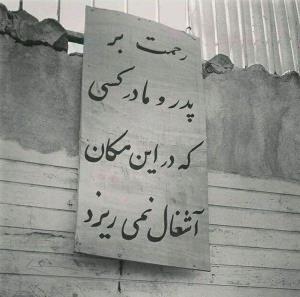 رحمت بر
پدر و مادر کسی
که در این مکان
آشغال نمی ریزد